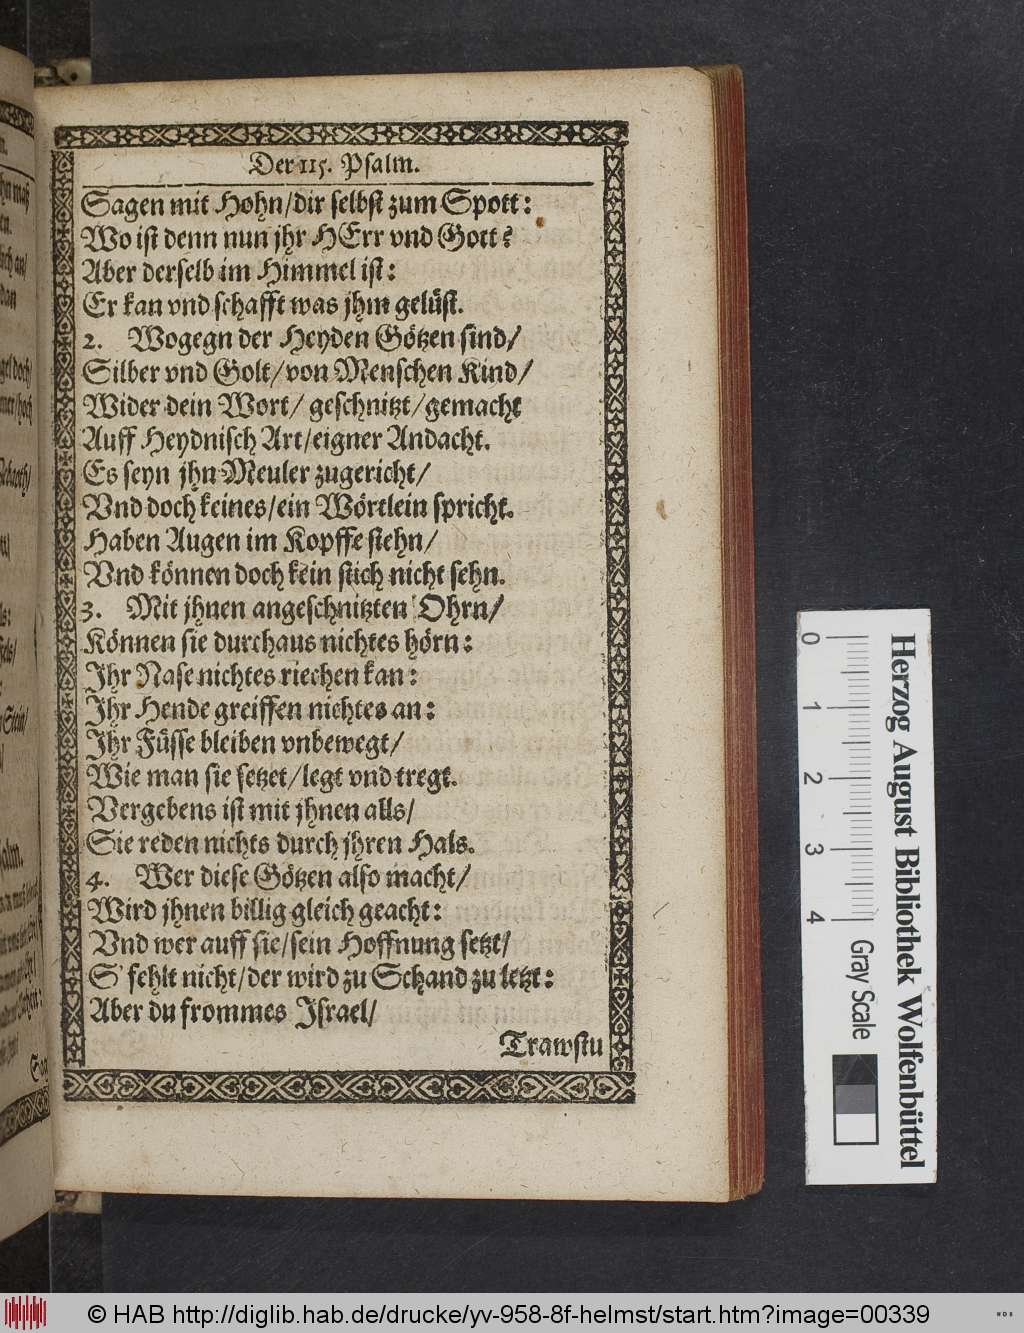 Der 115. Psalm.
Sagen mit Hohn/dir selbst zum Spott:
Wo ist denn nun jhr HErr vnd Gott?
Aber derselb im Himmel ist:
Er kan vnd schafft was jhm gelüst.
2. Wogegn der Heyden Götzen sind/
Silber vnd Golt/von Menschen Kind/
Wider dein Wort/ geschnitzt/gemacht
Auff Heydnisch Art/eigner Andacht.
Es seyn jhn Meuler zugericht/
Vnd doch keines/ein Wörtlein spricht.
Haben Augen im Kopffe stehn/
Vnd können doch kein stich nicht sehn.
3. Mit jhnen angeschnitzten Ohrn/
Können sie durchaus nichtes hörn:
Ihr Nase nichtes riechen kan:
Ihr Hende greiffen nichtes an:
Ihr Füsse bleiben vnbewegt/
Wie man sie setzet/legt vnd tregt.
Vergebens ist mit jhnen alls/
Sie reden nichts durch jhren Hals.
4. Wer diese Götzen also macht/
Wird jhnen billig gleich geacht:
Vnd wer auff sie/sein Hoffnung setzt/
S' fehlt nicht/der wird zu Schand zu letzt:
Aber du frommes Israel/
Trawstu
0 1 2 3 4
Gray Scale
Herzog August Bibliothek Wolfenbüttel
© HAB http://diglib.hab.de/drucke/yv-958-8f-helmst/start.htm?image=00339